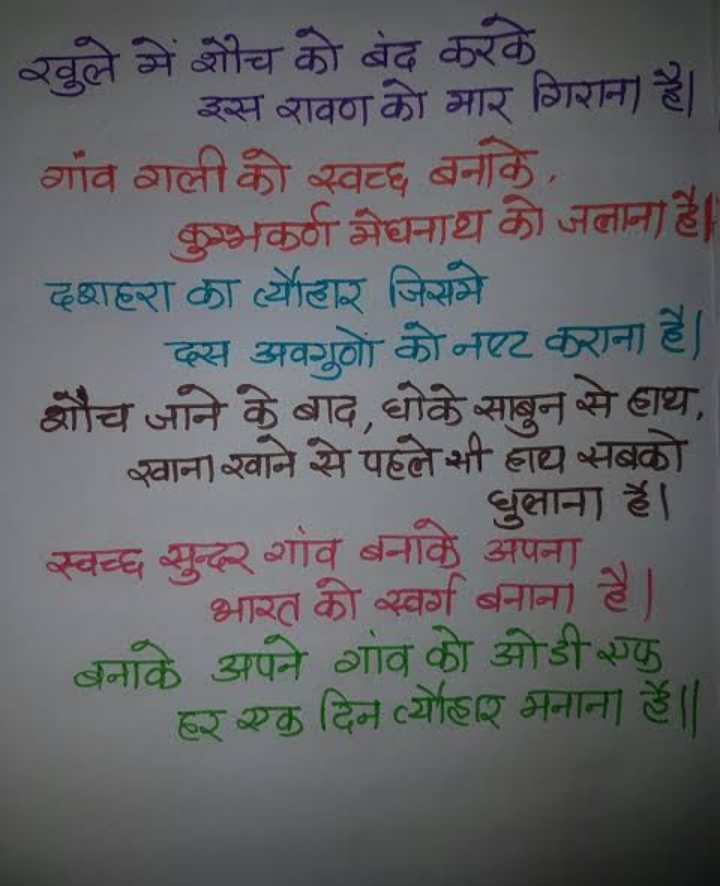 खुले में शौच को बंद करके
इस रावण को मार गिराना है।
गांव गली को स्वच्छ बनाके,
कुम्भकर्ण मेघनाथ को जलाना है।
दशहरा का त्यौहार जिसमे
दस अवगुणों को नष्ट कराना है।
शौच जाने के बाद, धोके साबुन से हाथ,
खाना खाने से पहले भी हाथ सबको
धुलाना है।
स्वच्छ सुन्दर गांव बनाके अपना
भारत को स्वर्ग बनाना है।
बनाके अपने गांव को ओडी एफ
हर एक दिन त्यौहार मनाना है॥